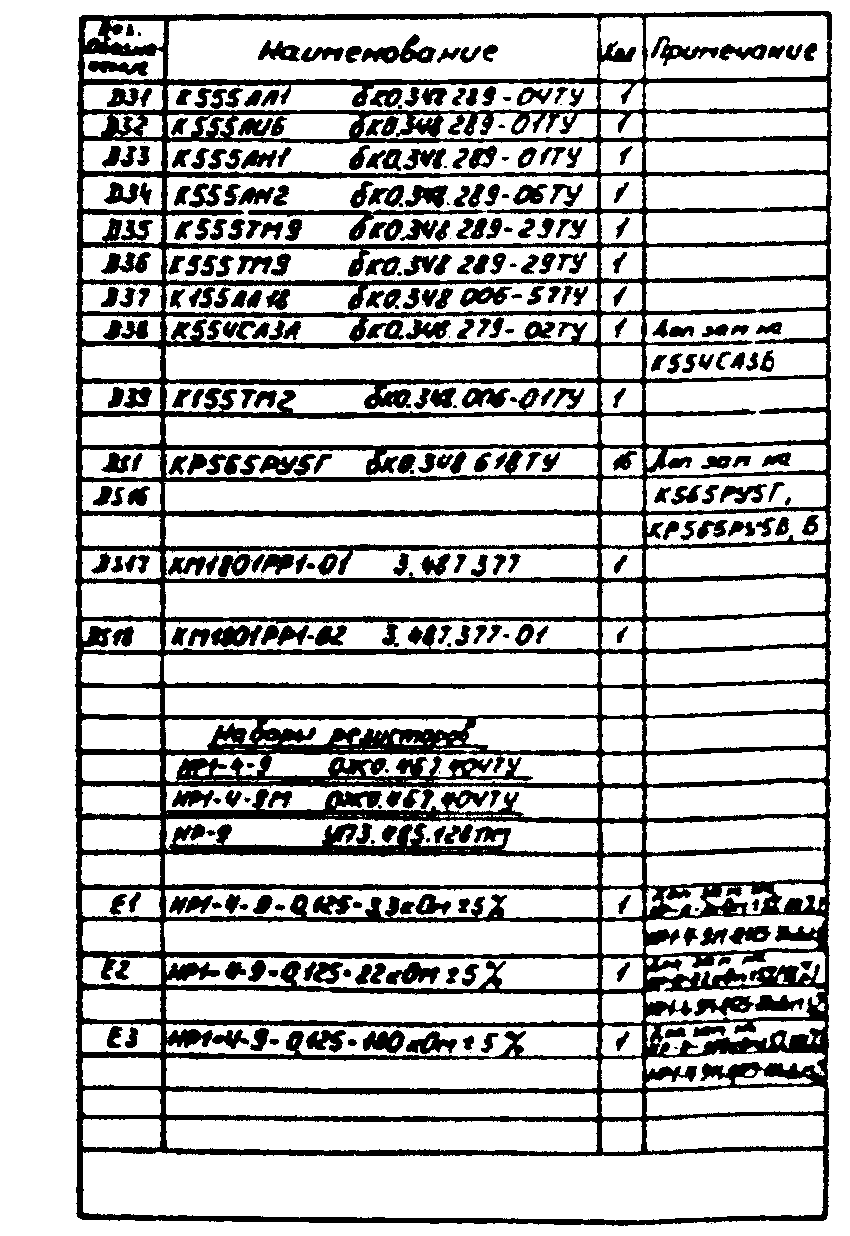 Поз. Обозначение Наименование Кол Примечание
D31 К555ЛЛ1 бК0.348 289-04ТУ 1
D32 К555ЛИ6 бК0.348 289-01ТУ 1
D33 К555ЛН1 бК0.348.289-01ТУ 1
D34 К555ЛН2 бК0.348.289-06ТУ 1
D35 К555ТМ9 бК0.348 289-29ТУ 1
D36 К555ТМ9 бК0.348 289-29ТУ 1
D37 К155ЛА18 бК0.348 006-57ТУ 1
D38 К554СА3А бК0.348.279-02ТУ 1 Доп зам на
К554СА3Б
D39 К155ТМ2 бК0.348.006-01ТУ 1
DS1 КР565РУ5Г бК0.348 618ТУ 16 Доп зам на
DS16 К565РУ5Г,
КР565РУ5В, В
DS17 КМ1801РР1-01 3.487.377 1
DS18 КМ1801РР1-02 3.487.377-01 1
Наборы резисторов
НР1-4-9 ОЖ0.467.404ТУ
НР1-4-9М ОЖ0.467.404ТУ
НР-9
E1 НР1-4-9-0,125-3,3кОм±5% 1 Доп зам на
E2 НР1-4-9-0,125-22кОм±5% 1 Доп зам на
E3 НР1-4-9-0,125-100кОм±5% 1 Доп зам на